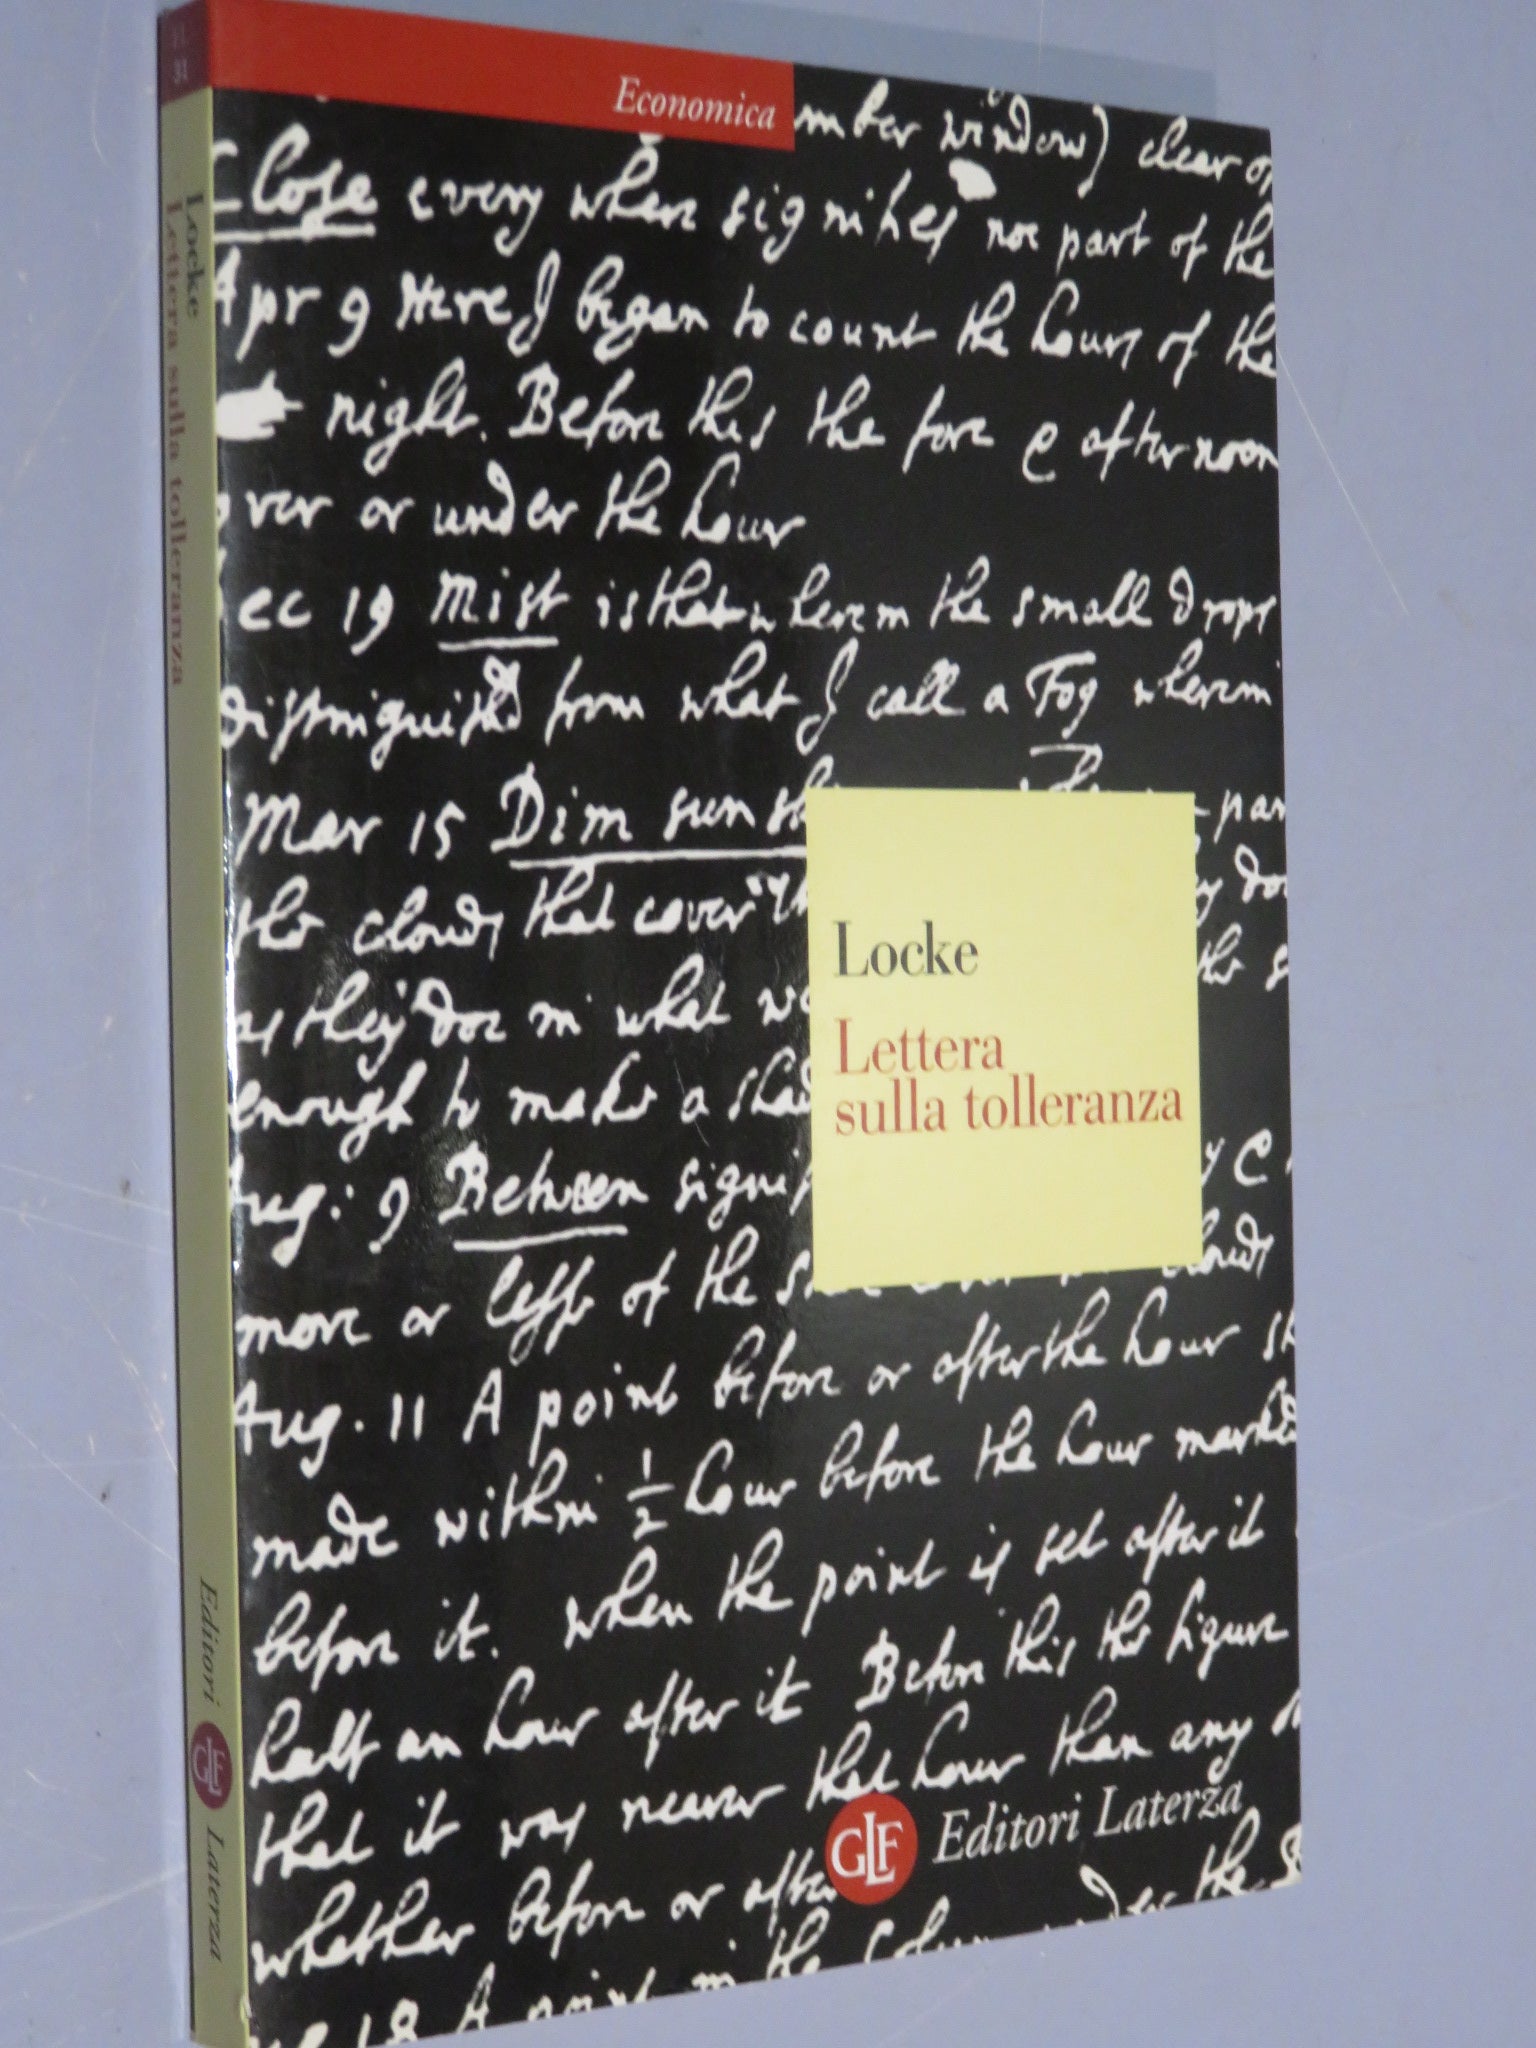 Economica
mber window) clear of
Close every where signifies noe part of the
Apr 9 Here I began to count the hours of the
night. Before this the fore & afternoon
over or under the hour
ec 19 Mist is that wherein the small drops
distinguishd from what I call a Fog wherein
Mar 15 Dim sun sh
par
the clouds that cover th
y doe
as they doe in what we
the s
enough to make a shad
Aug: 9 Between signif
y C
more or lesse of the s
clouds
Aug. 11 A point before or after the hour
made within 1/2 hour before the hour marked
before it. when the point is set after it
half an hour after it Before this the figure
that it was nearer that hour than any
whether before or after
the
18 A point in the
Locke
Lettera
sulla tolleranza
GLF Editori Laterza
Locke
Lettera sulla tolleranza
Editori GLF Laterza